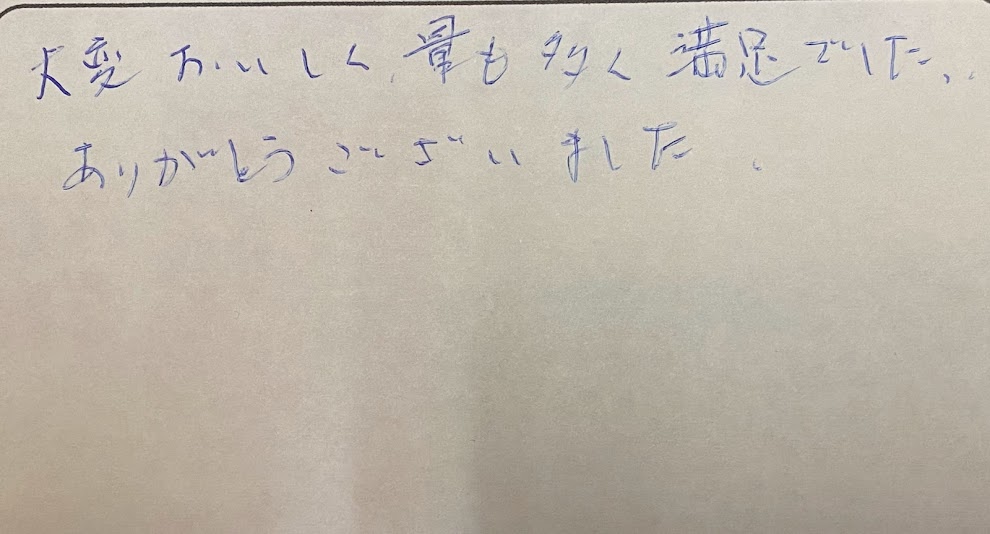 大変おいしく、量も多く満足でした。
ありがとうございました。